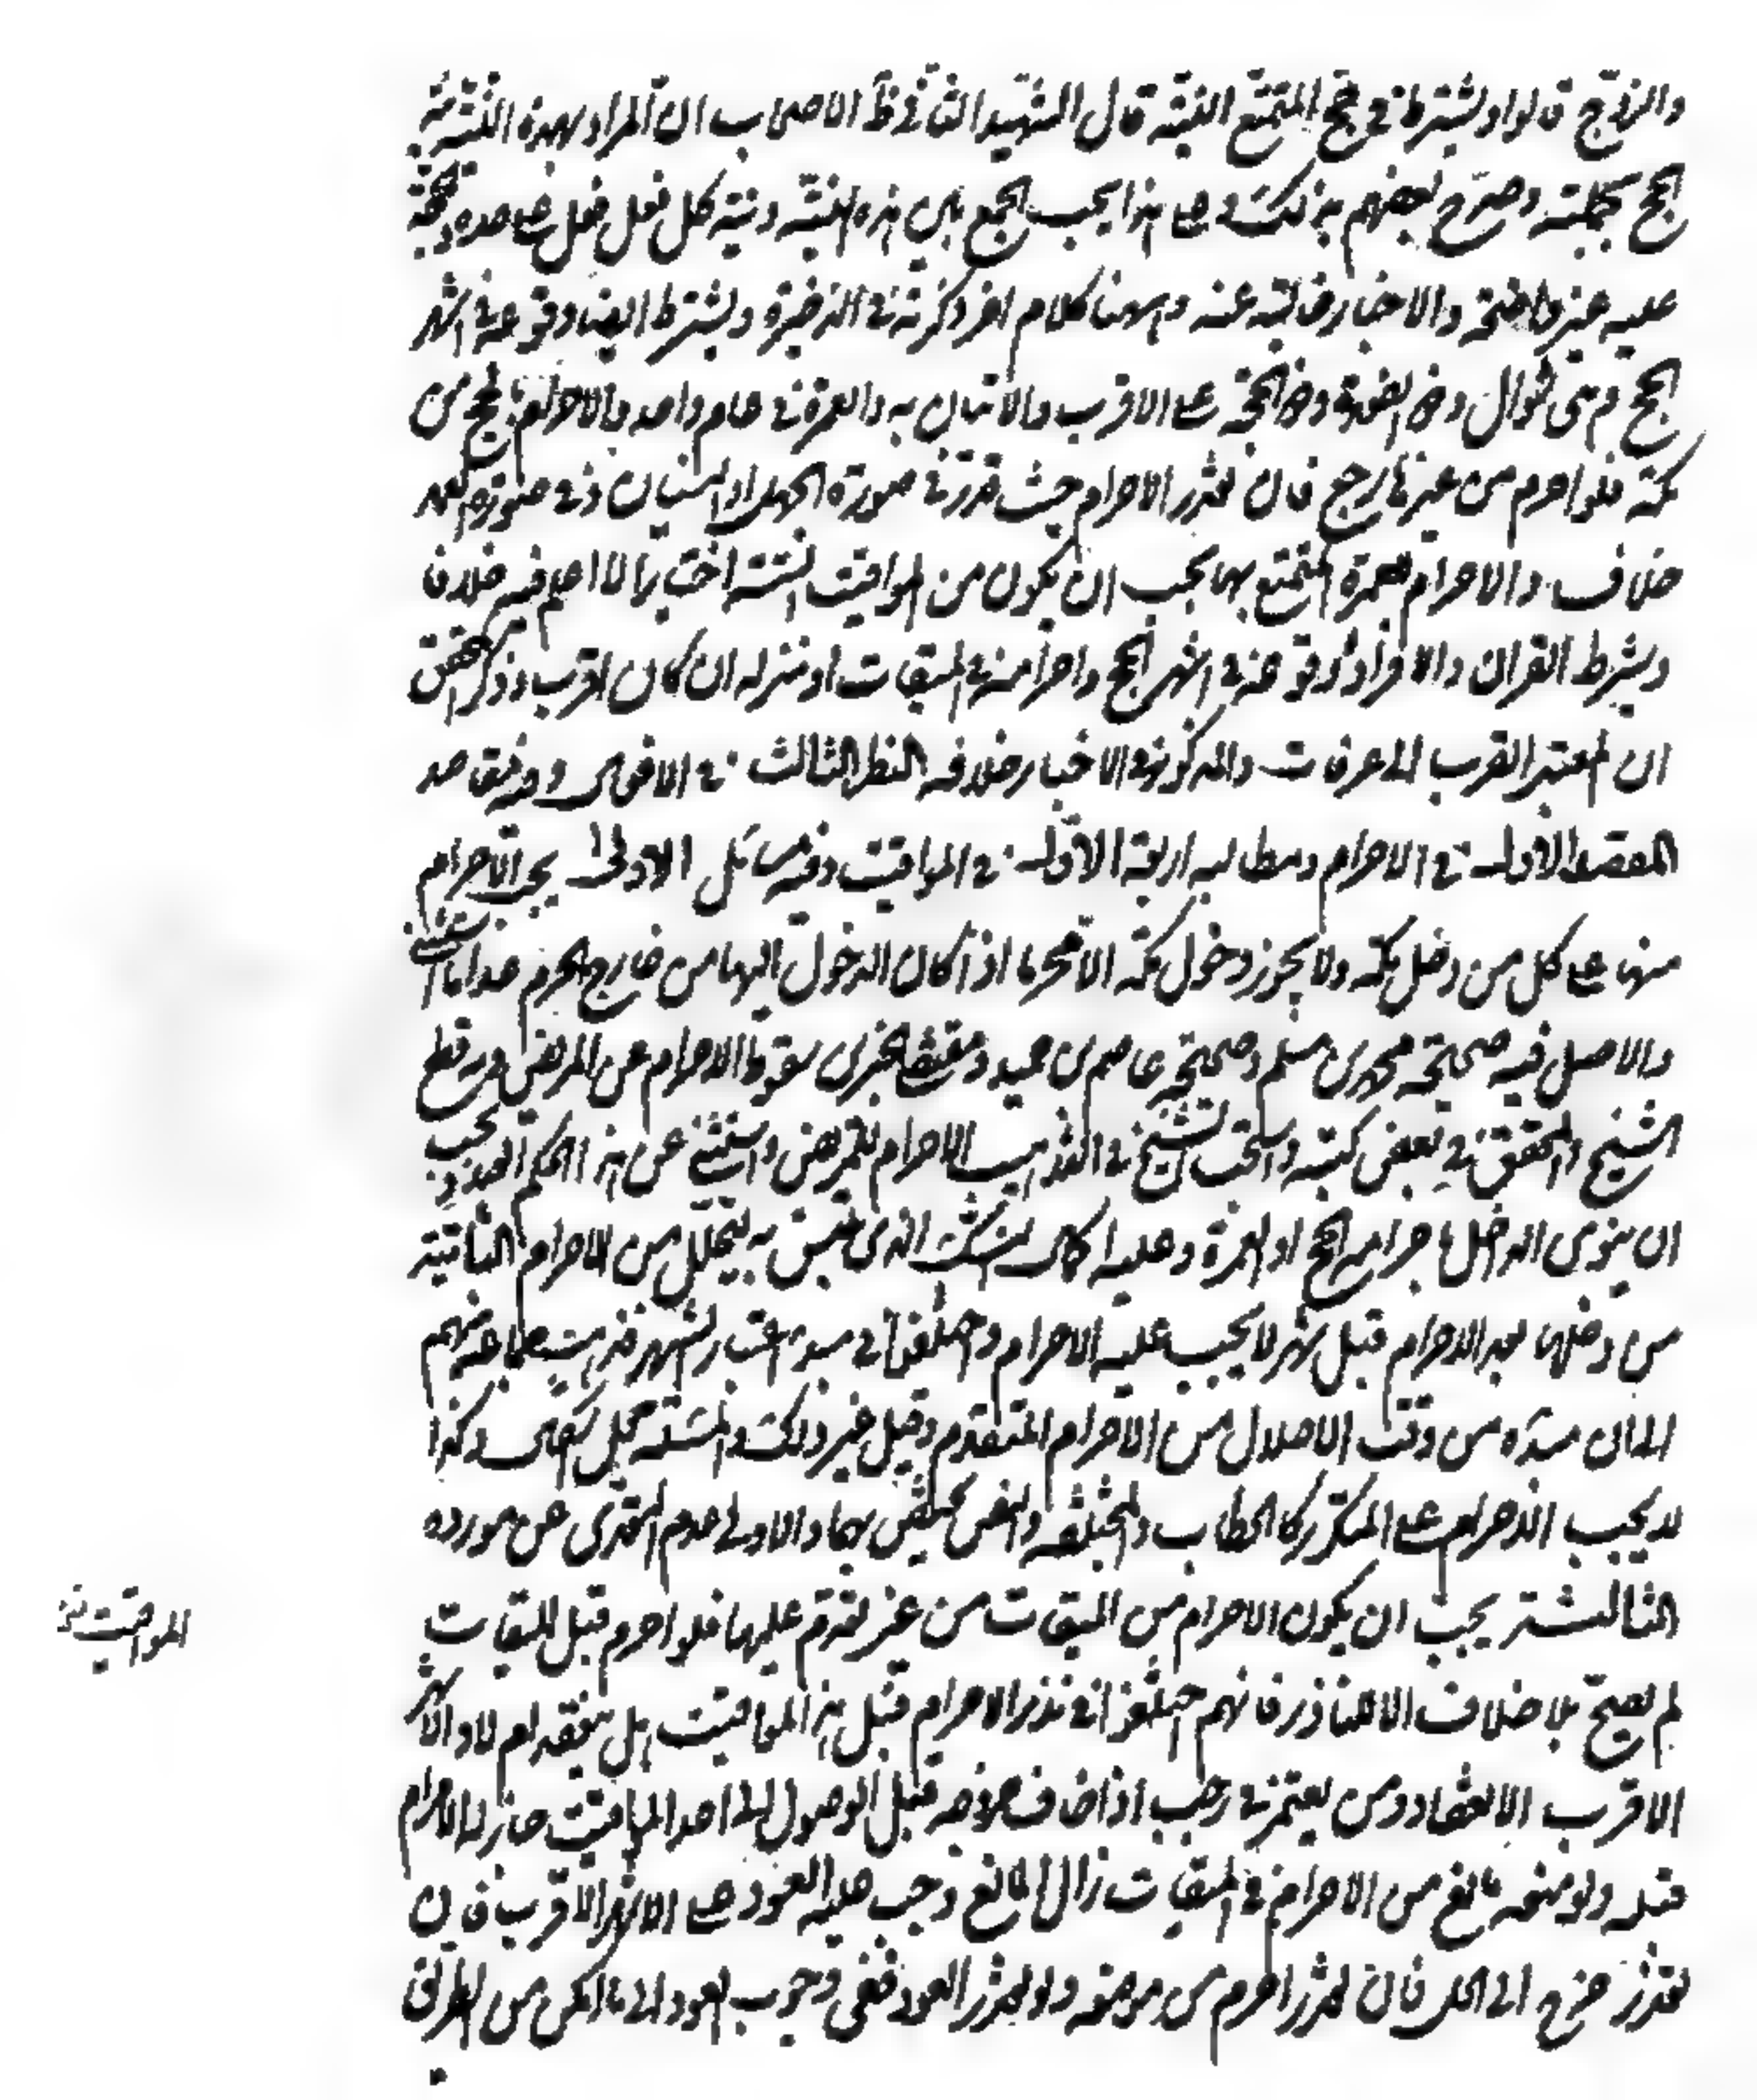 والزوج قالوا ويشترط في حج التمتع النية قال الشهيد الثاني ظ الاصحاب ان المراد بهذه النية نية
الحج بجملته وصرح بعضهم بذلك وعلى هذا يجب الجمع بين هذه النية ونية كل فعل فعل على حده وحجة
عليه غير واضحة والاخبار خالية عنه وههنا كلام اخر ذكرته في الذخيرة ويشترط ايضا وقوعه في اشهر
الحج وهى شوال وذو القعدة وذو الحجة على الاقرب والاتيان به والعمرة في عام واحد والاحرام بالحج من
مكة فلو احرم من غيرها رجع فان تعذر الاحرام حيث قدر في صورة الجهل او النسيان وفي صورة العمد
خلاف والاحرام بعمرة التمتع بها يجب ان يكون من المواقيت الستة اختيارا لا اعلم فيه خلافا
ويشترط القران والافراد وقوعه في اشهر الحج واحرامه في الميقات او منزله ان كان اقرب وذكر المحقق
ان المعتبر القرب الى عرفات والمذكور في الاخبار خلافه النظر الثالث في الافعال وفيه مقاصد
المقصد الاول في الاحرام ومطالبه اربعة الاول في المواقيت وفيه مسائل الاولى يجب الاحرام
منها على كل من دخل مكة ولا يجوز دخول مكة الا محرما اذا كان الدخول اليها من خارج الحرم عدا ما استثنى
والاصل فيه صحيحة محمد بن مسلم وصحيحة عاصم بن حميد ومقتضى الخبرين سقوط الاحرام عن المريض وبه قطع
الشيخ والمحقق في بعض كتبه واستحب الشيخ في التهذيب الاحرام للمريض واستثنى عن هذا الحكم العبد ويجب
ان ينوى الداخل باحرامه الحج او العمرة وعليه اكمال النسك الذى تلبس به ليتحلل من الاحرام الثانية
من دخلها بعد الاحرام قبل شهر لا يجب عليه الاحرام واختلفوا في مبدء اعتبار الشهر فذهب جماعة منهم
الى ان مبدءه من وقت الاحلال من الاحرام المتقدم وقيل غير ذلك والمسئلة محل اشكال وكذا
لا يجب الاحرام على المتكرر كالحطاب والحشاش والنص مختص بهما والاولى عدم التعدى عن مورده
الثالثة يجب ان يكون الاحرام من الميقات من غير تقدم عليها فلو احرم قبل الميقات
لم يصح بلا خلاف الا للناذر فانهم اختلفوا في نذر الاحرام قبل هذا المواقيت هل ينعقد ام لا والاشهر
الاقرب الانعقاد ومن يعتمر في رجب اذا خاف خروجه قبل الوصول الى احد المواقيت جاز له الاحرام
قبله ولو منعه مانع من الاحرام في الميقات زال المانع وجب عليه العود على الاشهر الاقرب فان
تعذر خرج الى الحل فان تعذر احرم من موضعه ولو تعذر العود ففى وجوب العود الى ما امكن من الطريق
المواقيت نخ